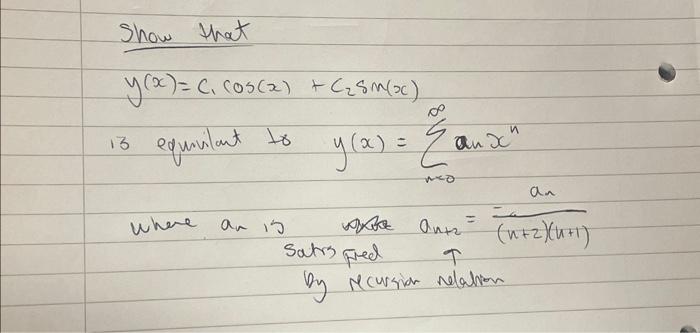 Show that
y(x) = C₁ cos(x) + C₂ Sin(x)
is equivilant to y(x) = ∞ Σ n=0 aₙ xⁿ
where aₙ is aₙ₊₂ = -aₙ / (n+2)(n+1)
Satisfied ↑
by recursion relation